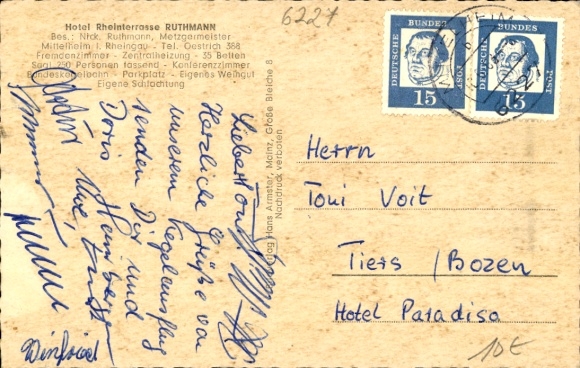 Hotel Rheinterrasse RUTHMANN
Bes.: Nick. Ruthmann, Metzgermeister
Mittelheim i. Rheingau - Tel. Oestrich 388
Fremdenzimmer - Zentralheizung - 35 Betten
Saal 250 Personen fassend - Konferenzzimmer
Bundeskegelbahn - Parkplatz - Eigenes Weingut
Eigene Schlachtung
6227
DEUTSCHE BUNDES POST
15
DEUTSCHE BUNDES POST
15
Verlag Hans Armster, Mainz, Große Bleiche 8
Nachdruck verboten.
Lieber Toni
Herzliche Grüße von
unserem Kegelausflug
senden Dir und
Doris
Uwe,
Winfried
Herrn
Toni Voit
Tiers / Bozen
Hotel Paradiso
10€